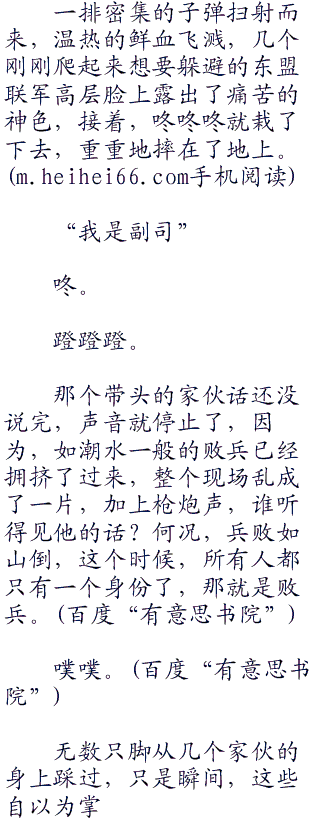 一排密集的子弹扫射而
来，温热的鲜血飞溅，几个
刚刚爬起来想要躲避的东盟
联军高层脸上露出了痛苦的
神色，接着，咚咚咚就栽了
下去，重重地摔在了地上。
(m.heihei66.com手机阅读)
“我是副司”
咚。
蹬蹬蹬。
那个带头的家伙话还没
说完，声音就停止了，因
为，如潮水一般的败兵已经
拥挤了过来，整个现场乱成
了一片，加上枪炮声，谁听
得见他的话？何况，兵败如
山倒，这个时候，所有人都
只有一个身份了，那就是败
兵。(百度“有意思书院”)
噗噗。(百度“有意思书
院”)
无数只脚从几个家伙的
身上踩过，只是瞬间，这些
自以为掌